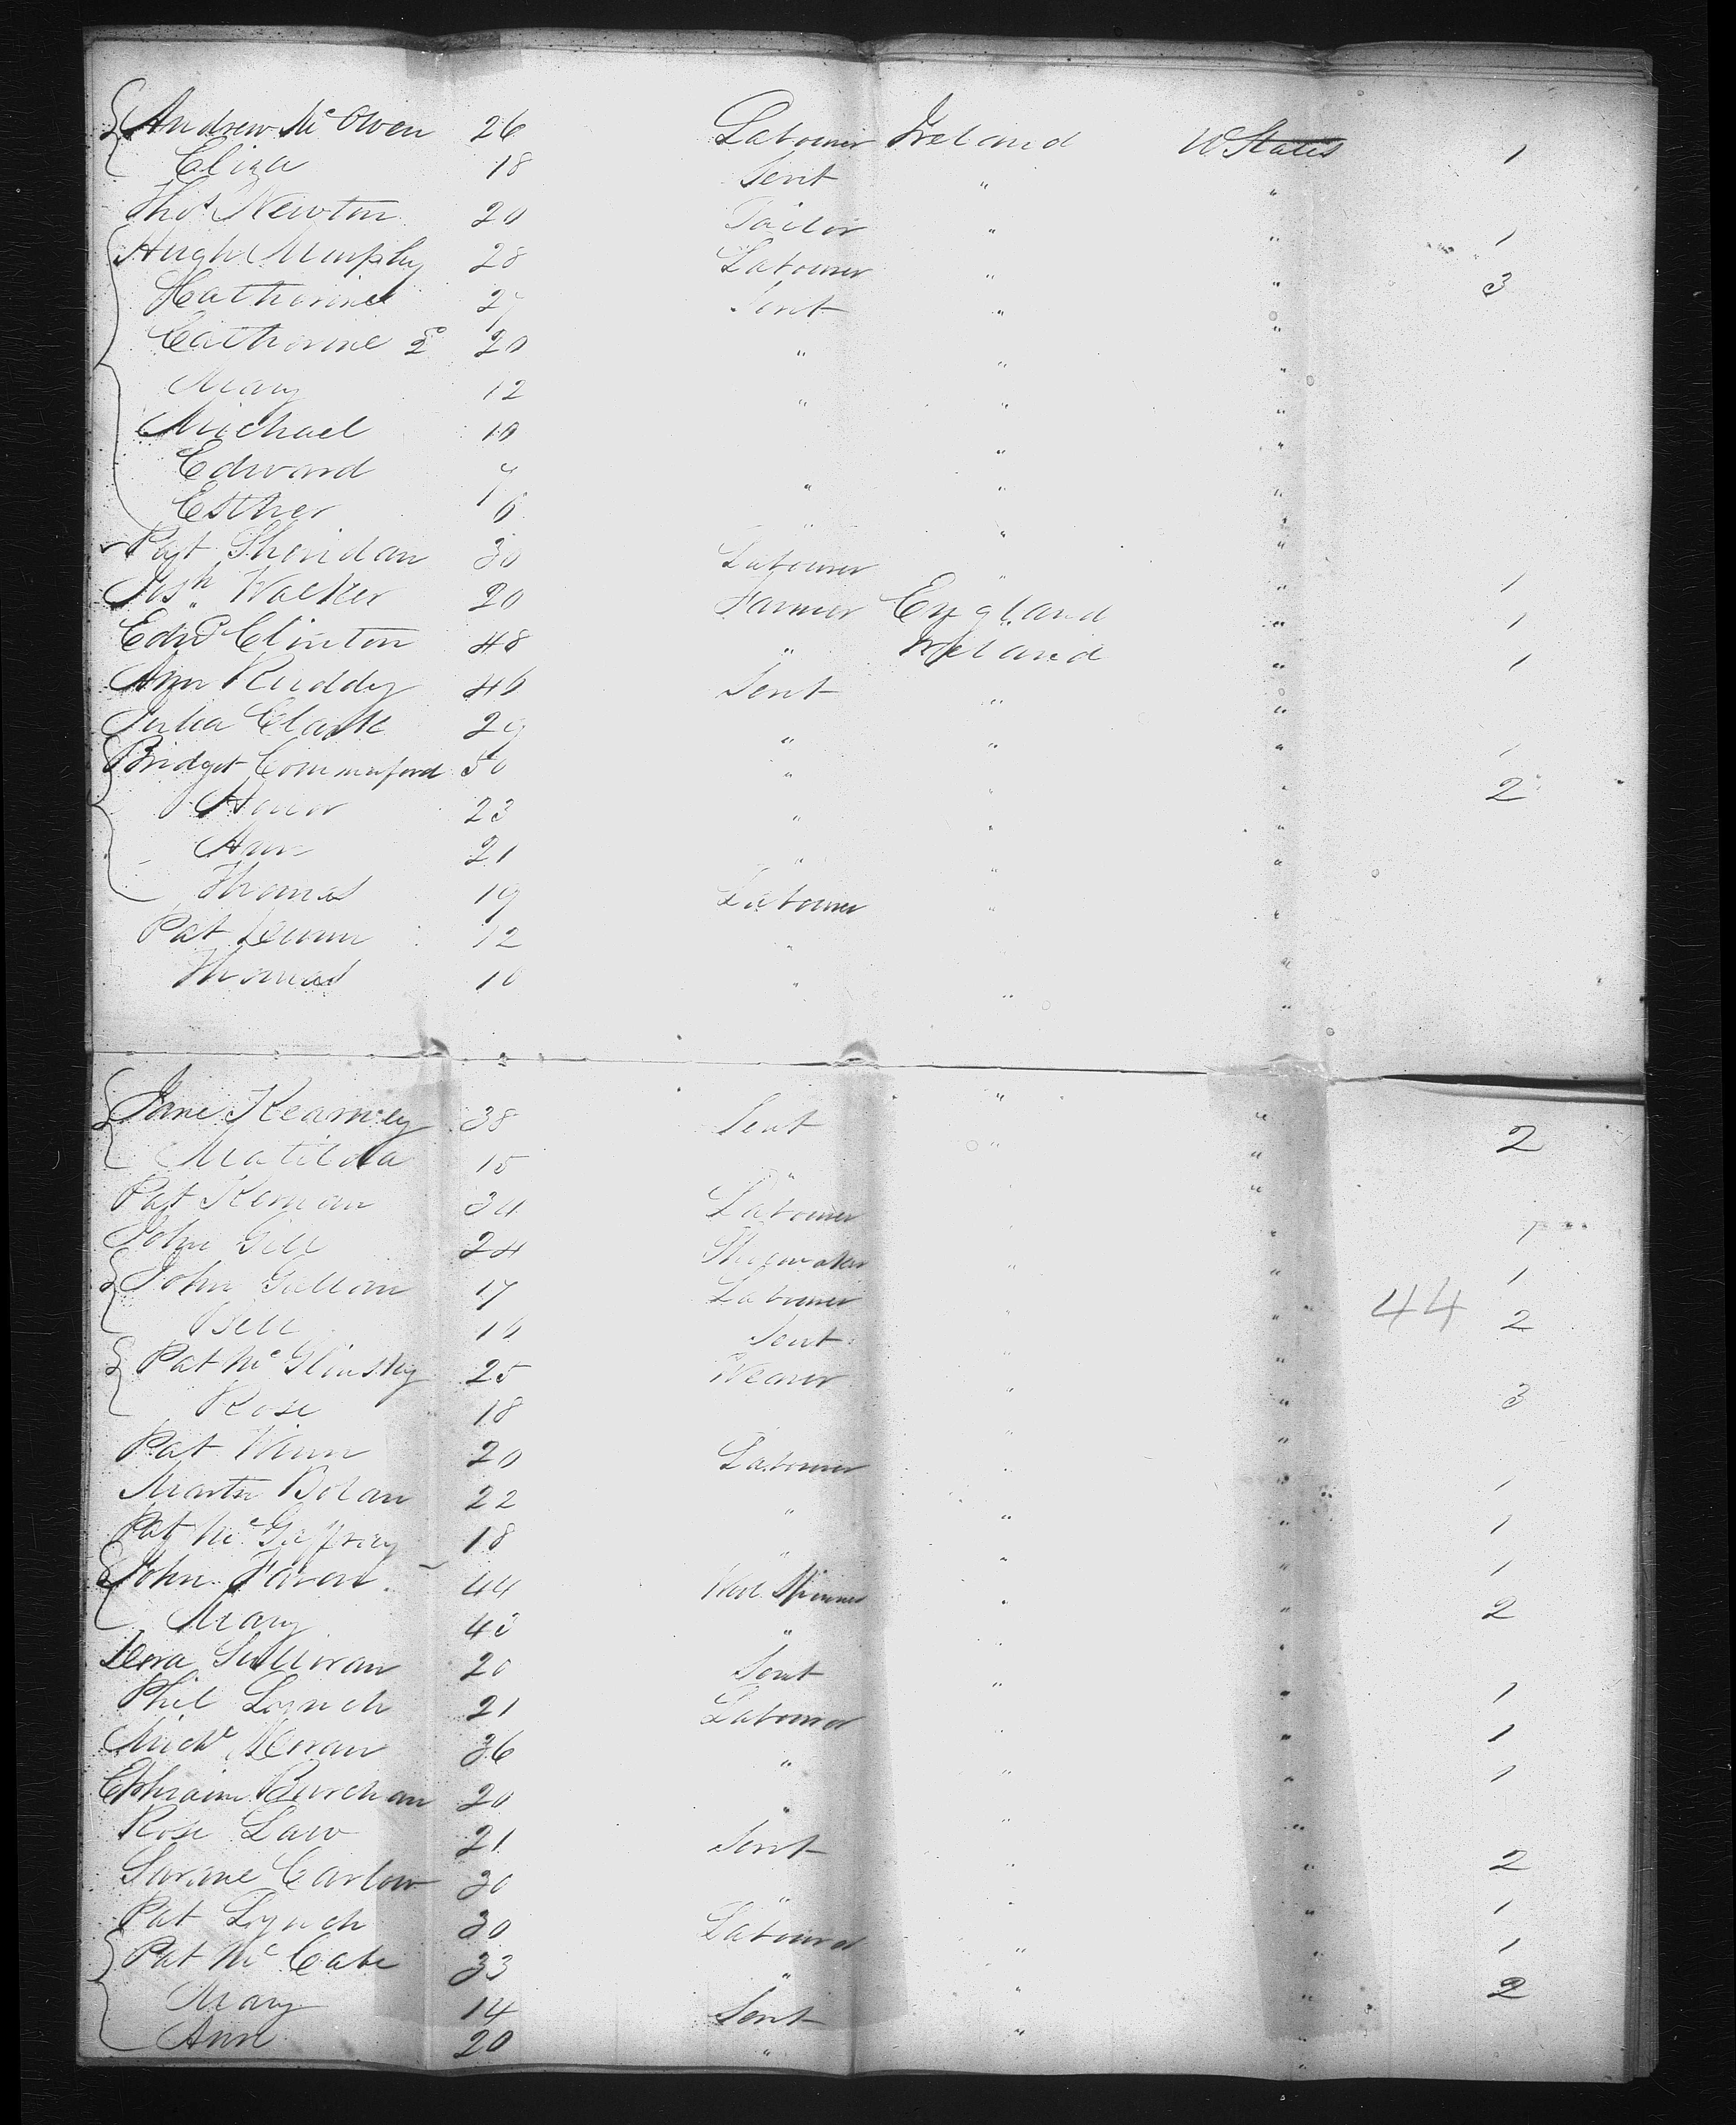 Andrew McOwen 26 Labourer Ireland U States 1
Eliza 18 Sert " "
Thos Newton 20 Tailor " " 1
Hugh Murphy 28 Labourer " " 3
Catherine 27 Sert " "
Catherine 2d 20 " " "
Mary 12 " " "
Michael 10 " "
Edward " " "
Esther 6 " " "
Pat Sheridan 30 Labourer " " 1
Josh Walker 20 Farmer England " 1
Edwd Clinton 48 " Ireland " 1
Ann Ruddy 46 Sert " "
Julia Clark 29 " " " 1
Bridget Commerford 50 " " " 2
Honor 23 " " "
Ann 21 " " "
Thomas 19 Labourer " "
Pat Dunn 12 " "
Thomas 10 " " "
Jane Kearney 38 Sert " " 2
Matilda 15 " " "
Pat Kernan 34 Labourer " " 1
John Gill 24 Shoemaker " " 1
John Gillan 17 Labourer " " 44 2
Bell 16 Sert " "
Pat Mc 25 Weaver " " 3
Rose 18 " "
Pat Winn 20 Labourer " " 1
Martin Bolan 22 " " " 1
Pat 18 " " " 1
John 44 Wool Spinner " " 2
Mary 43 " " "
Sullivan 20 Sert " " 1
Phil Lynch 21 Labourer " " 1
Michl Moran 36 " " " 1
Ephraim 20 " " "
Rose Law 21 Sert " " 2
Carlow 30 " " " 1
Pat Lynch 30 Labourer " " 1
Pat McCabe 33 " " " 2
Mary 14 Sert " "
Ann 20 "